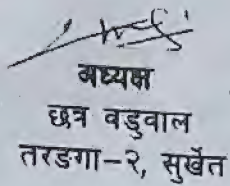 अध्यक्ष
छत्र वडुवाल
तरङगा-२, सुर्खेत